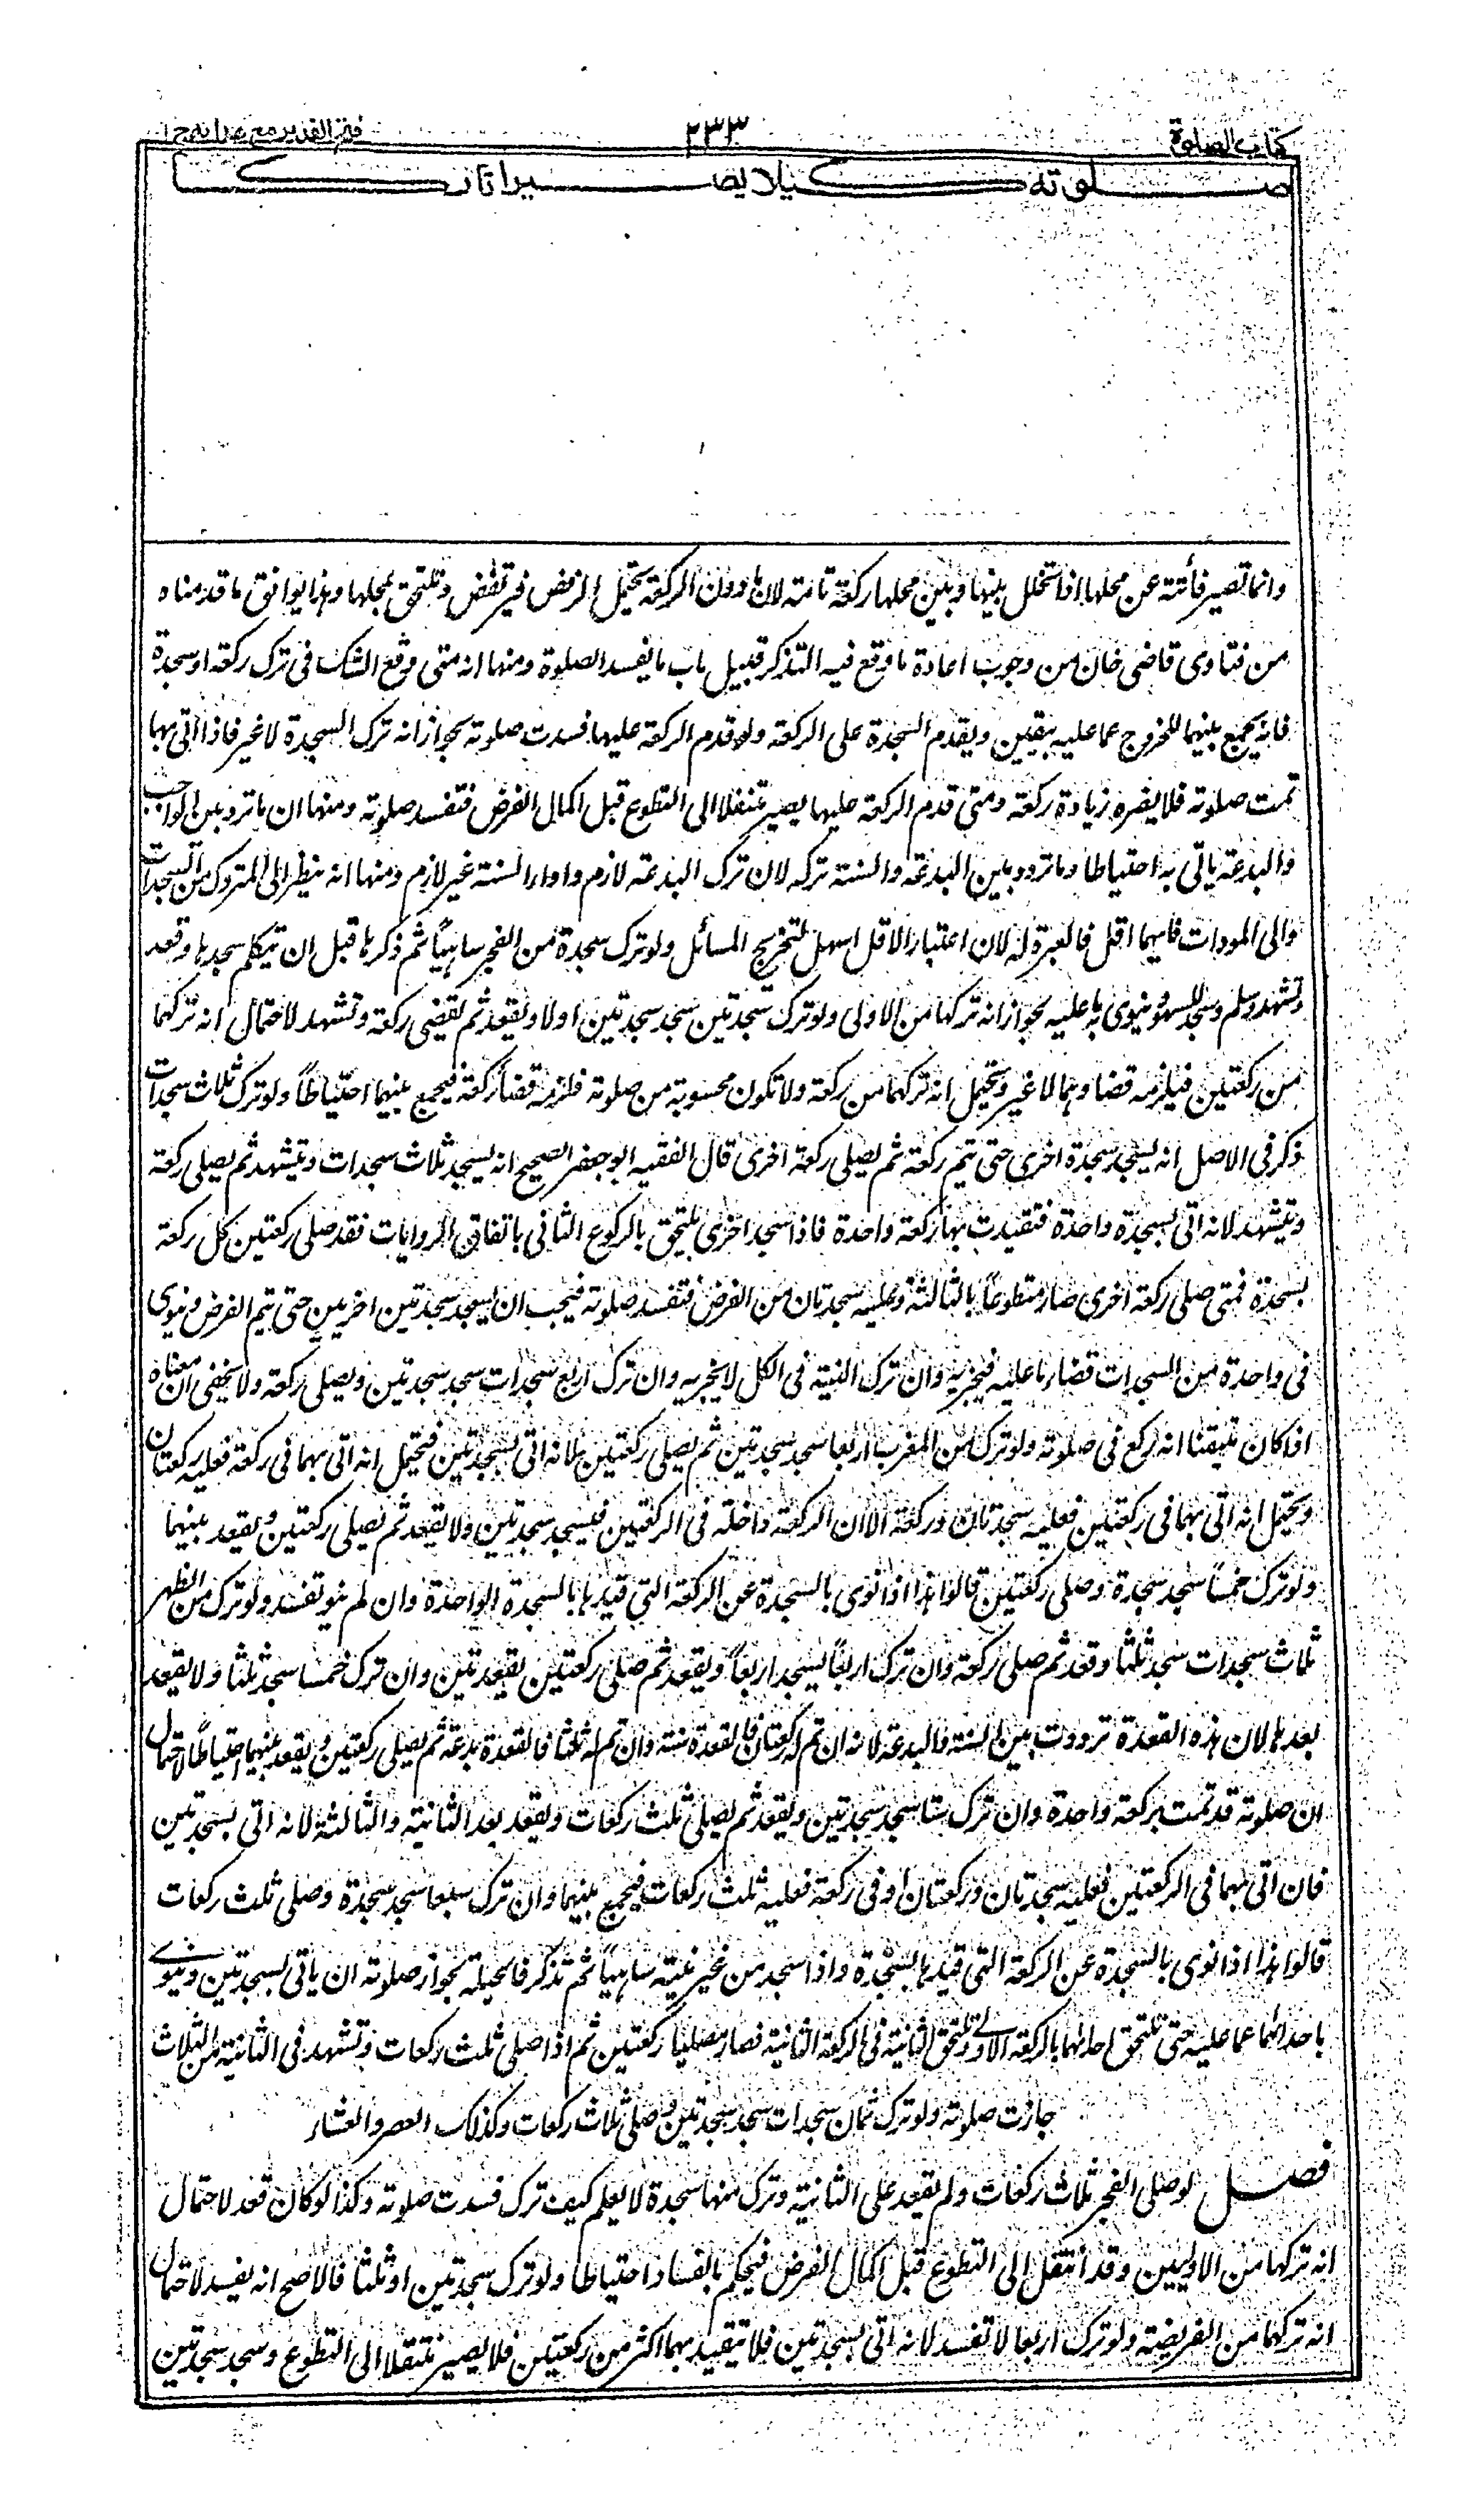 كتاب الصلوة
٢٣٣
فتح القدير مع هدايه ج ا
صلوته كيلا يصير تاركا
وانما تصير فائتة عن محلها اذا تخلل بينها وبين محلها ركعة تامة لان ما دون الركعة يحتمل الرفض فيرتفض وتلتحق بمحلها وهذا يوافق ما قدمناه
من فتاوى قاضى خان من وجوب اعادة ما وقع فيه التذكر قبيل باب ما يفسد الصلوة ومنها انه متى وقع الشك فى ترك ركعة او سجدة
فانه يجمع بينهما للخروج عما عليه بيقين ويقدم السجدة على الركعة ولو قدم الركعة عليها فسدت صلوته لجواز انه ترك السجدة لا غير فاذا اتى بها
تمت صلوته فلا يضره زيادة ركعة ومتى قدم الركعة عليها يصير متنفلا الى التطوع قبل اكمال الفرض فتفسد صلوته ومنها ان ما تردد بين الواجب
والبدعة ياتى به احتياطا وما تردد بين البدعة والسنة تركه لان ترك البدعة لازم واداء السنة غير لازم ومنها انه ينظر الى المتروك من السجدات
والى المودات فايهما اقل فالعبرة له لان اعتبار الاقل اسهل لتخريج المسائل ولو ترك سجدة من الفجر ساهيًا ثم ذكرها قبل ان يتكلم سجدها وقعد
وتشهد وسلم وسجد للسهو وينوى به ما عليه لجواز انه تركها من الاولى ولو ترك سجدتين سجد سجدتين اولا ويقعد ثم يقضى ركعة وتشهد لاحتمال انه تركهما
من ركعتين فيلزمه قضاؤهما لا غير ويحتمل انه تركهما من ركعة ولا تكون محسوبة من صلوته فلزمه قضاء ركعة فيجمع بينهما احتياطاً ولو ترك ثلاث سجدات
ذكر فى الاصل انه يسجد سجدة اخرى حتى تتم ركعة ثم يصلى ركعة اخرى قال الفقيه ابو جعفر الصحيح انه يسجد ثلاث سجدات ويتشهد ثم يصلى ركعة
ويتشهد لانه اتى بسجدة واحدة فتقيدت بها ركعة واحدة فاذا سجد اخرى يلتحق بالركوع الثانى باتفاق الروايات فقد صلى ركعتين كل ركعة
بسجدة فمتى صلى ركعة اخرى صار متطوعاً بالثالثة وعليه سجدتان من الفرض فتفسد صلوته فيجب ان يسجد سجدتين اخريين حتى يتم الفرض وينوى
فى واحدة من السجدات قضاء ما عليه فيجزيه وان ترك النية فى الكل لا يجزيه وان ترك اربع سجدات سجد سجدتين ويصلى ركعة ولا يخفى ان معناه
اذا كان تيقنا انه ركع فى صلوته ولو ترك من المغرب اربعا سجد سجدتين ثم يصلى ركعتين لانه اتى بسجدتين فيحتمل انه اتى بهما فى ركعة فعليه ركعتان
ويحتمل انه اتى بهما فى ركعتين فعليه سجدتان وركعة الا ان الركعة داخلة فى الركعتين فيسجد سجدتين ولا يقعد ثم يصلى ركعتين ويقعد بينهما
ولو ترك خمساً سجد سجدة وصلى ركعتين قالوا هذا اذا نوى بالسجدة عن الركعة التى قيدها بالسجدة الواحدة وان لم ينو تفسد ولو ترك من الظهر
ثلاث سجدات سجد ثلثا وقعد ثم صلى ركعة وان ترك اربعاً يسجد اربعاً ويقعد ثم صلى ركعتين بقعدتين وان ترك خمسا سجد ثلثا ولا يقعد
بعدها لان هذه القعدة ترددت بين السنة والبدعة لانه ان تم له ركعتان فالقعدة سنة وان تم له ثلثا فالقعدة بدعة ثم يصلى ركعتين ويقعد بينهما احتياطًا لاحتمال
ان صلوته قد تمت بركعة واحدة وان ترك ستا سجد سجدتين ويقعد ثم يصلى ثلث ركعات ويقعد بعد الثانية والثالثة لانه اتى بسجدتين
فان اتى بهما فى الركعتين فعليه سجدتان وركعتان او فى ركعة فعليه ثلث ركعات فيجمع بينهما وان ترك سبعا سجد سجدة وصلى ثلث ركعات
قالوا هذا اذا نوى بالسجدة عن الركعة التى قيدها بالسجدة واذا سجد من غير نية ساهيًا ثم تذكر فالحيلة لجواز صلوته ان ياتى بسجدتين وينوى
باحداهما عما عليه حتى تلتحق احداهما بالركعة الاولى وتلتحق الثانية فى الركعة الثانية فصار مصليا ركعتين ثم اذا صلى ثلث ركعات وتشهد فى الثانية من الثلاث
جازت صلوته ولو ترك ثمان سجدات سجد سجدتين وصلى ثلاث ركعات وكذلك العصر والعشاء
فصل لو صلى الفجر ثلاث ركعات ولم يقعد على الثانية وترك منها سجدة لا يعلم كيف ترك فسدت صلوته وكذا لو كان قعد لاحتمال
انه تركها من الاوليين وقد انتقل الى التطوع قبل اكمال الفرض فيحكم بالفساد احتياطا ولو ترك سجدتين او ثلثا فالاصح انه يفسد لاحتمال
انه تركهما من الفريضة ولو ترك اربعا لا تفسد لانه اتى بسجدتين فلا يتقيد بهما اكثر من ركعتين فلا يصير منتقلا الى التطوع وسجد سجدتين